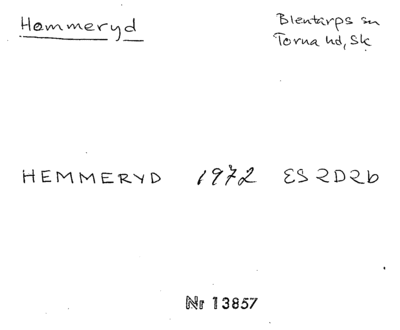 Hommeryd
Blentarps sn
Torna hd, Sk
HEMMERYD 1972 ES 2D2b
Nr 13857